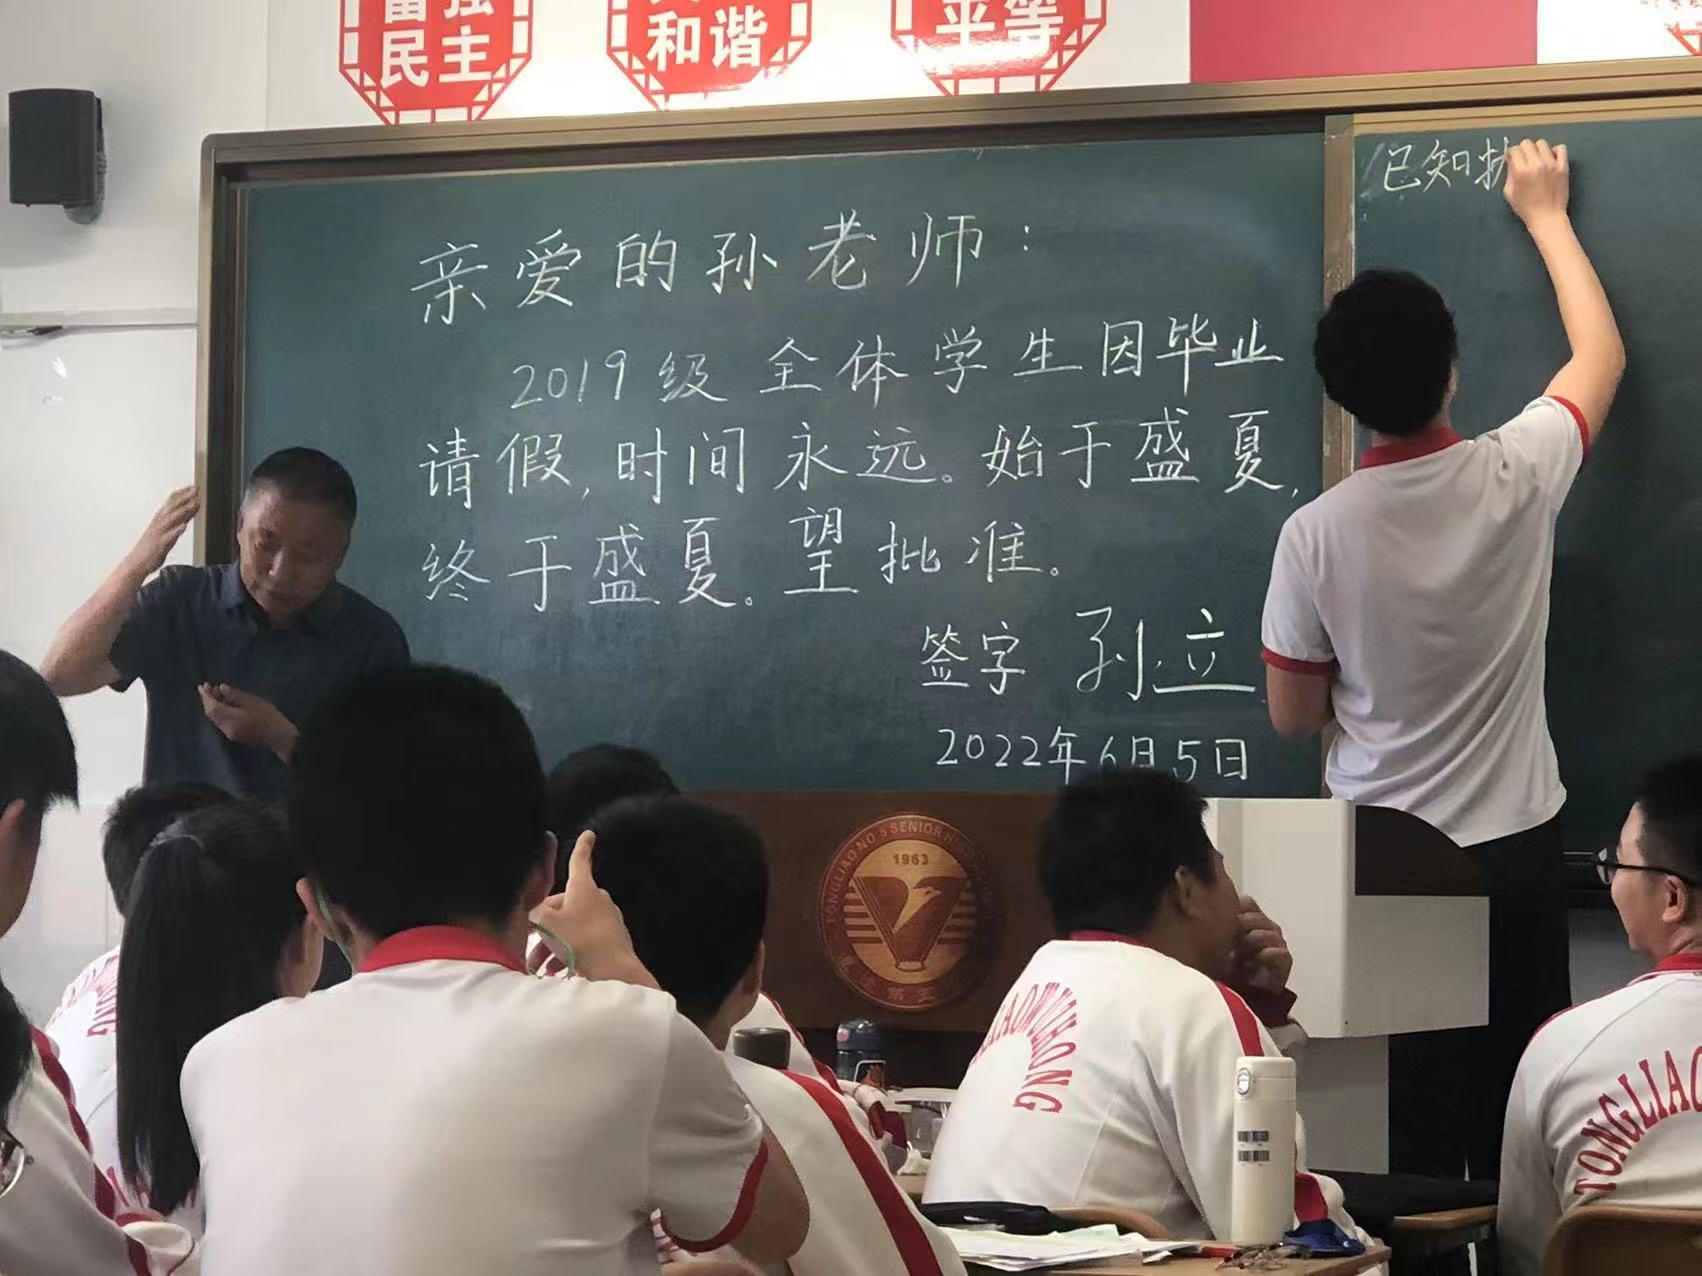 民主
和谐
平等
亲爱的孙老师：
2019级全体学生因毕业
请假,时间永远。始于盛夏,
终于盛夏。望批准。
签字 孙立
2022年6月5日
已知
TONGLIAO NO 5 SENIOR
1963
TONGLIAO